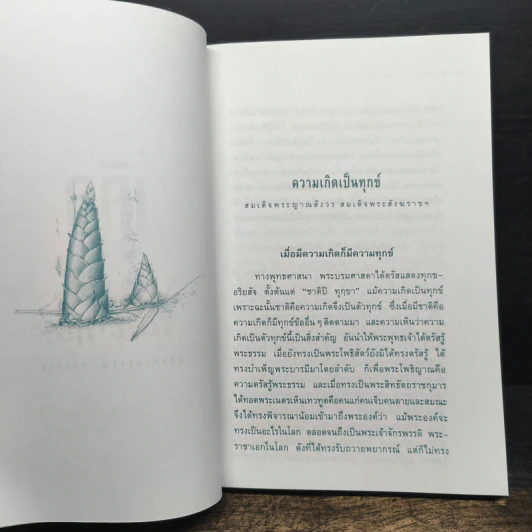 ความเกิดเป็นทุกข์
สมเด็จพระญาณสังวร สมเด็จพระสังฆราชฯ
เมื่อมีความเกิดก็มีความทุกข์
ทางพุทธศาสนา พระบรมศาสดาได้ตรัสแสดงทุกข-
อริยสัจ ตั้งต้นแต่ “ชาติปิ ทุกฺขา” แม้ความเกิดเป็นทุกข์
เพราะฉะนั้นชาติคือความเกิดจึงเป็นตัวทุกข์ ซึ่งเมื่อมีชาติคือ
ความเกิดก็มีทุกข์ข้ออื่นๆ ติดตามมา และความเห็นว่าความ
เกิดเป็นตัวทุกข์นี้เป็นสิ่งสำคัญ อันนำให้พระพุทธเจ้าได้ตรัสรู้
พระธรรม เมื่อยังทรงเป็นพระโพธิสัตว์ยังมิได้ตรัสรู้ ได้
ทรงบำเพ็ญพระบารมีมาโดยลำดับ ก็เพื่อพระโพธิญาณคือ
ความตรัสรู้พระธรรม และเมื่อทรงเป็นพระสิทธัตถราชกุมาร
ได้ทอดพระเนตรเห็นเทวทูตคือคนแก่คนเจ็บคนตายและสมณะ
จึงได้ทรงพิจารณาน้อมเข้ามาถึงพระองค์ว่า แม้พระองค์จะ
ทรงเป็นอะไรในโลก ตลอดจนถึงเป็นพระเจ้าจักรพรรดิ พระ-
ราชาเอกในโลก ดังที่ได้ทรงรับถวายพยากรณ์ แต่ก็ไม่ทรง